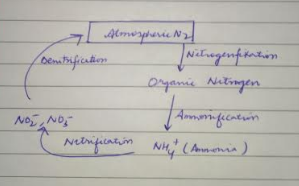 Atmospheric N2
Denitrification
Nitrogenfixation
Organic Nitrogen
Ammonification
NO2-, NO3-
Nitrification
NH4+ (Ammonia)